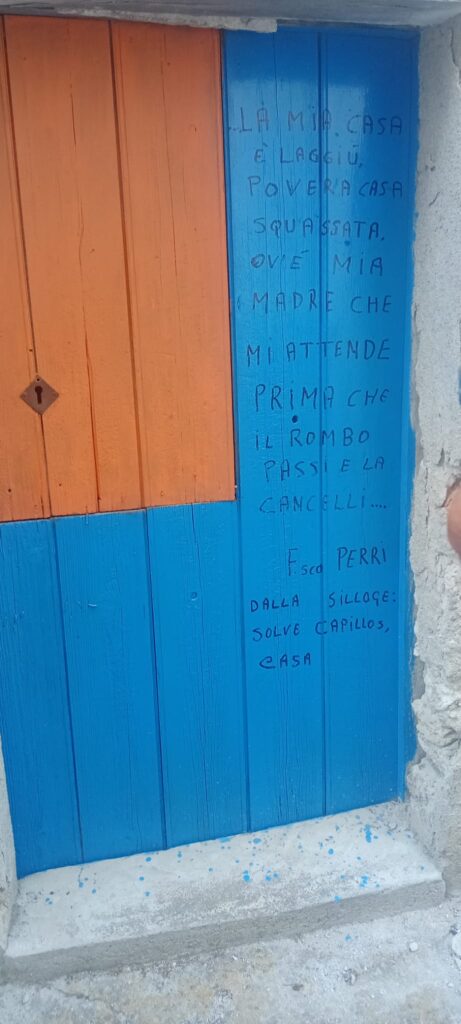 ..LA MIA CASA
È LAGGIÙ,
POVERA CASA
SQUASSATA,
OV'È MIA
MADRE CHE
MI ATTENDE
PRIMA CHE
IL ROMBO
PASSI E LA
CANCELLI....
Fsco PERRI
DALLA SILLOGE:
SOLVE CAPILLOS,
CASA